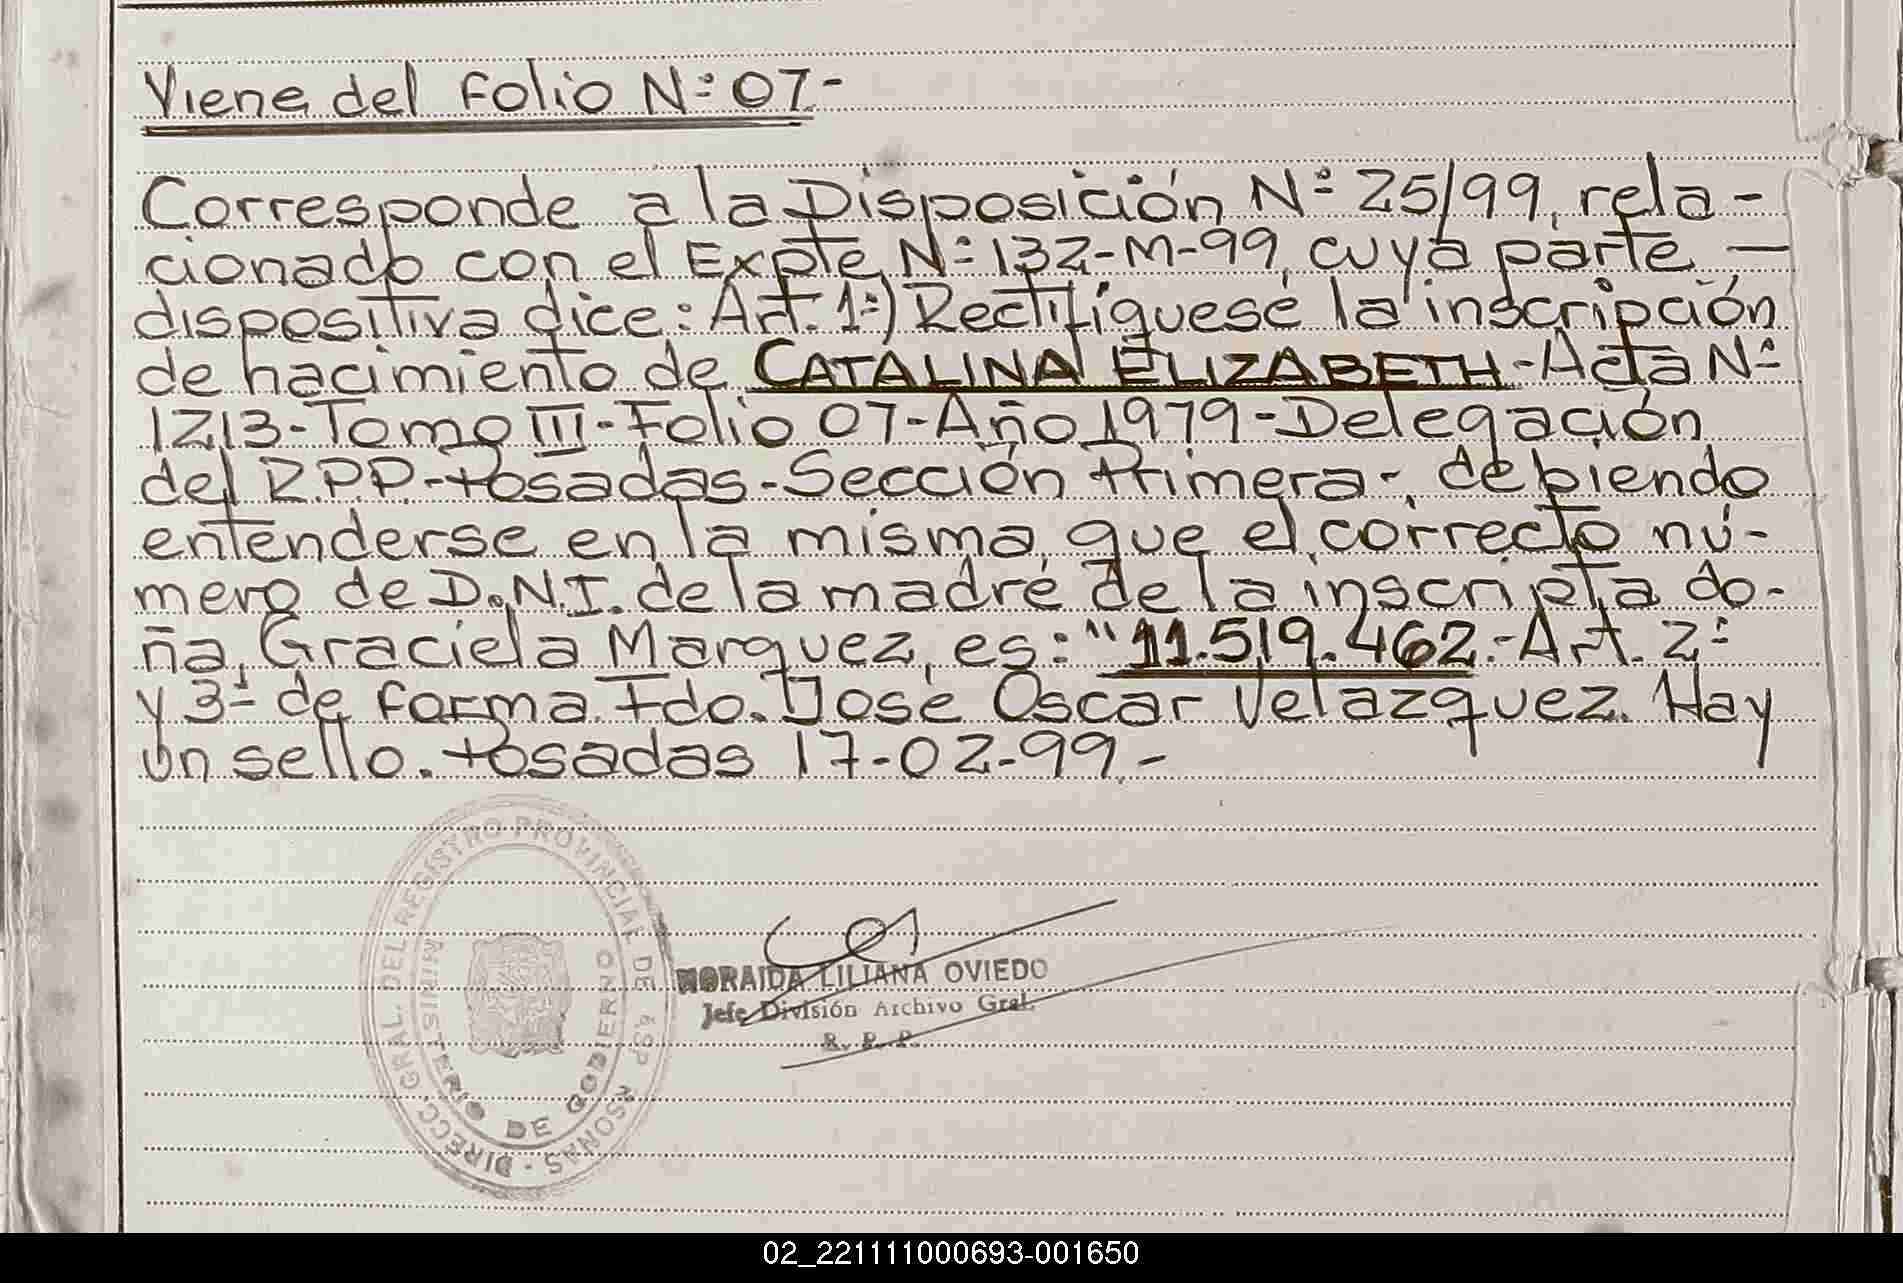 Viene del Folio N° 07.-
Corresponde a la Disposición N° 25/99, rela-
cionado con el Expte N° 132-M-99, cuya parte —
dispositiva dice: Art. 1°) Rectifíquese la inscripción
de nacimiento de CATALINA ELIZABETH-Acta N°
1213-Tomo III-Folio 07-Año 1979-Delegación
del R.P.P.-Posadas-Sección Primera-, debiendo
entenderse en la misma, que el correcto nú-
mero de D.N.I. de la madre de la inscripta do-
ña, Graciela Marquez, es: "11.519.462.-Art. 2°
y 3° de forma. Fdo. José Oscar Velazquez. Hay
un sello. Posadas 17-02-99.-
DIRECC. GRAL. DEL REGISTRO PROVINCIAL DE
MINISTERIO DE GOBIERNO
NORAIDA LILIANA OVIEDO
Jefe División Archivo Gral.
R. P. P.
02_221111000693-001650